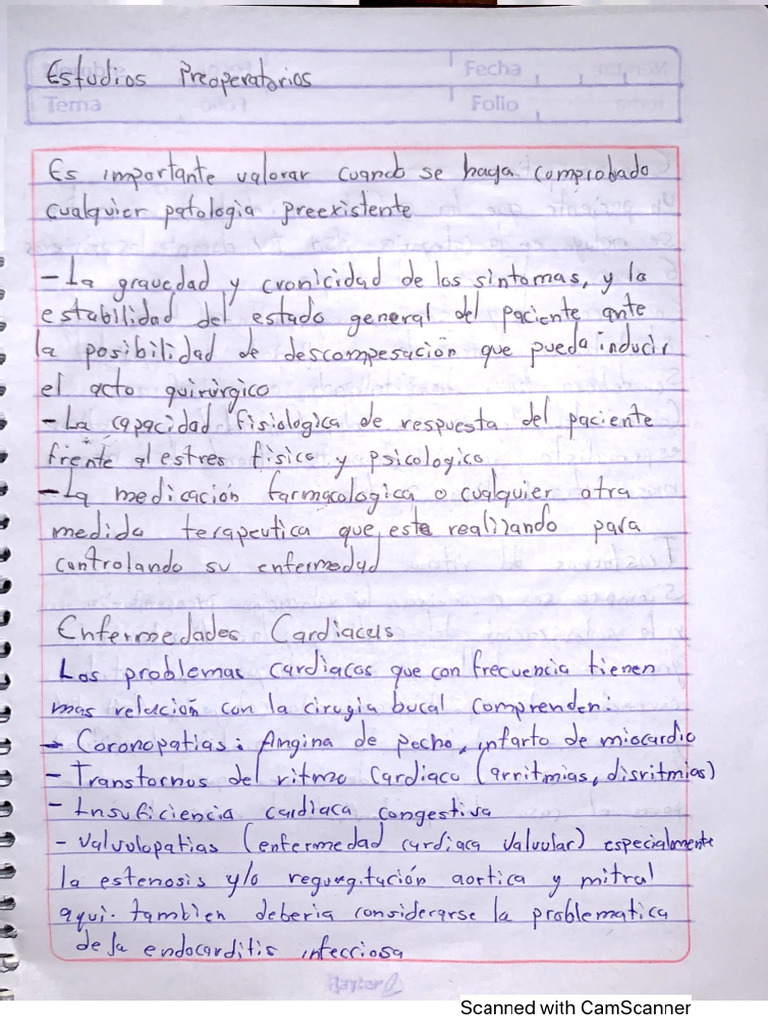 Estudios Preoperatorios
Fecha
Tema
Folio
Es importante valorar cuando se haya comprobado
cualquier patologia preexistente
- La gravedad y cronicidad de los sintomas, y la
estabilidad del estado general del paciente ante
la posibilidad de descompesación que pueda inducir
el acto quirúrgico
- La capacidad fisiologica de respuesta del paciente
frente al estres físico y psicologico
- La medicación farmacologica o cualquier otra
medida terapeutica que este realizando para
controlando su enfermedad
Enfermedades Cardiacas
Los problemas cardiacos que con frecuencia tienen
mas relación con la cirugia bucal comprenden:
- Coronopatias: Angina de pecho, infarto de miocardio
- Transtornos del ritmo cardiaco (arritmias, disritmias)
- Insuficiencia cardiaca congestiva
- Valvulopatias (enfermedad cardiaca valvular) especialmente
la estenosis y/o regurgitación aortica y mitral
aqui. tambien deberia considerarse la problematica
de la endocarditis infecciosa
Scanned with CamScanner